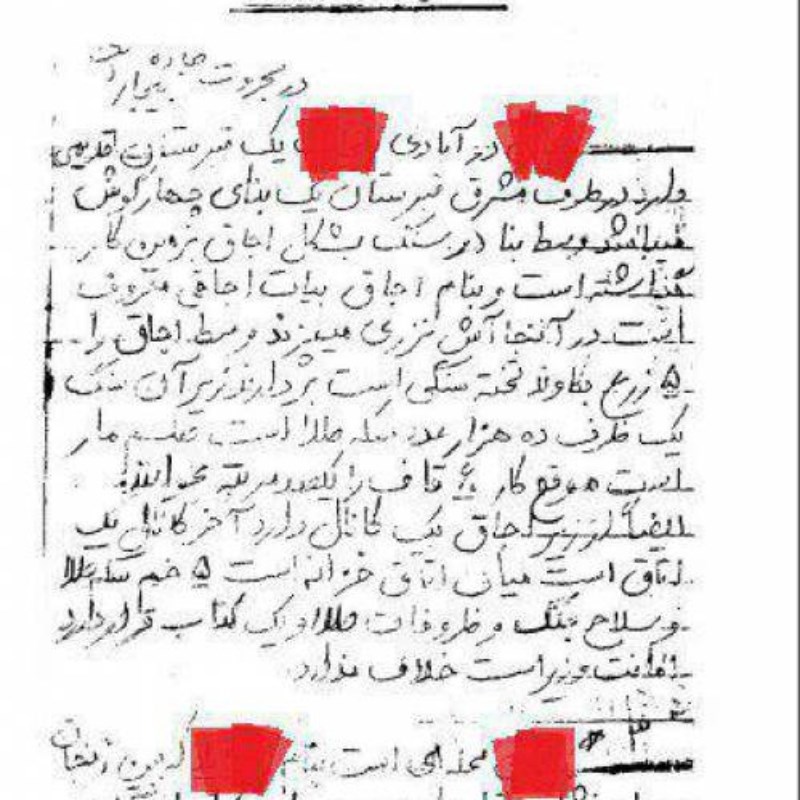 در آبادی یک قبرستان قدیمی
دارد در طرف مشرق قبرستان یک بنای چهار گوش
میباشد وسط بنا در سنگ بشکل اجاق
گذاشته است و بنام اجاق بیات اجاقی معروف
است در آنجا آش نزری میپزند وسط اجاق را
۵ زرع بکاوند تخته سنگی است بردارند زیر آن سنگ
یک ظرف ده هزار عدد سکه طلا است طلسم مار
است موقع کار قاف را یکصد مرتبه بخوانند
ایضاً در زیر اجاق یک کانال دارد آخر کانال یک
اتاق است میان اتاق خزانه است ۵ خم سکه طلا
و سلاح جنگ و ظروفات طلا و یک کتاب قرار دارد
امانت وزیر است خلاف ندارد
محلی است بنام